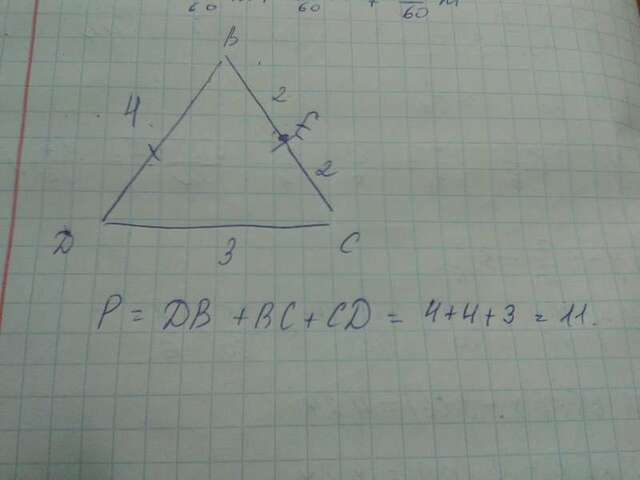 60 60 + 60 м
B
4 2
F
2
D 3 C
P = DB + BC + CD = 4+4+3 = 11.